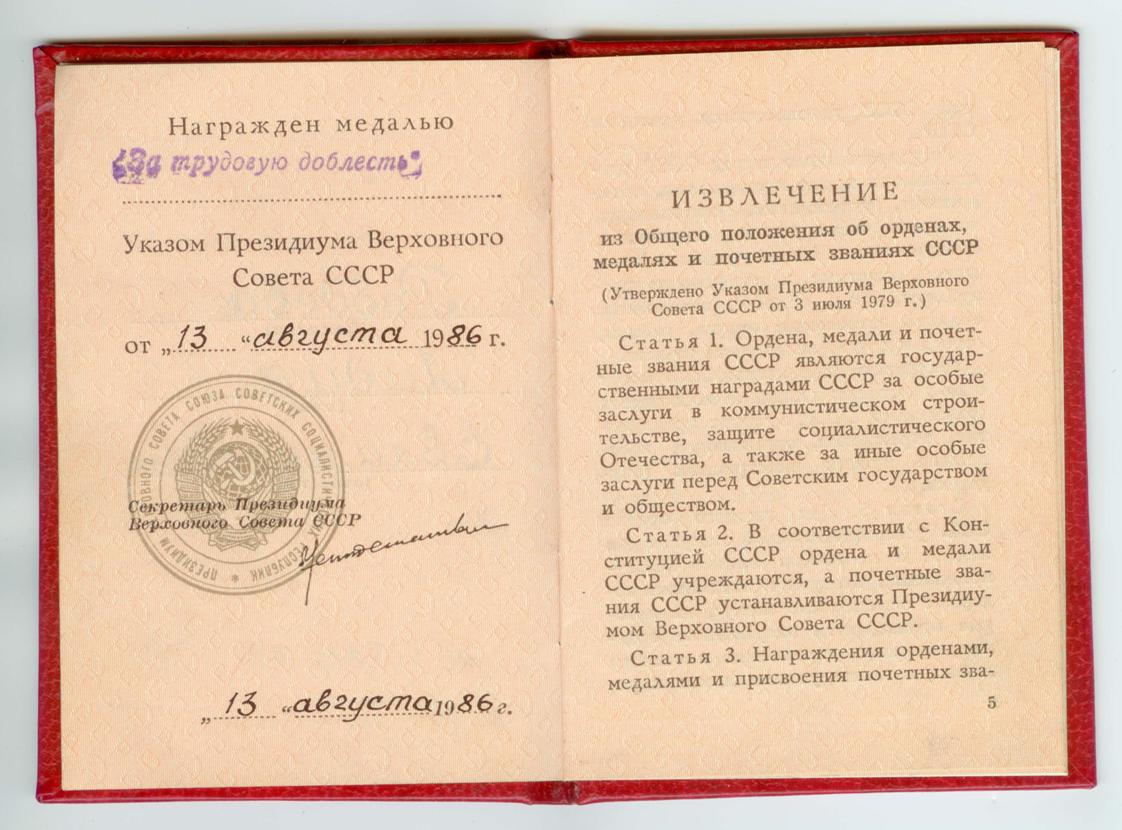 Награжден медалью
„За трудовую доблесть“
Указом Президиума Верховного
Совета СССР
от „13 “ августа 1986 г.
ПРЕЗИДИУМ ВЕРХОВНОГО СОВЕТА СОЮЗА СОВЕТСКИХ СОЦИАЛИСТИЧЕСКИХ РЕСПУБЛИК *
Секретарь Президиума
Верховного Совета СССР
„13 “ августа 1986 г.
ИЗВЛЕЧЕНИЕ
из Общего положения об орденах,
медалях и почетных званиях СССР
(Утверждено Указом Президиума Верховного
Совета СССР от 3 июля 1979 г.)
Статья 1. Ордена, медали и почет-
ные звания СССР являются государ-
ственными наградами СССР за особые
заслуги в коммунистическом строи-
тельстве, защите социалистического
Отечества, а также за иные особые
заслуги перед Советским государством
и обществом.
Статья 2. В соответствии с Кон-
ституцией СССР ордена и медали
СССР учреждаются, а почетные зва-
ния СССР устанавливаются Президиу-
мом Верховного Совета СССР.
Статья 3. Награждения орденами,
медалями и присвоения почетных зва-
5